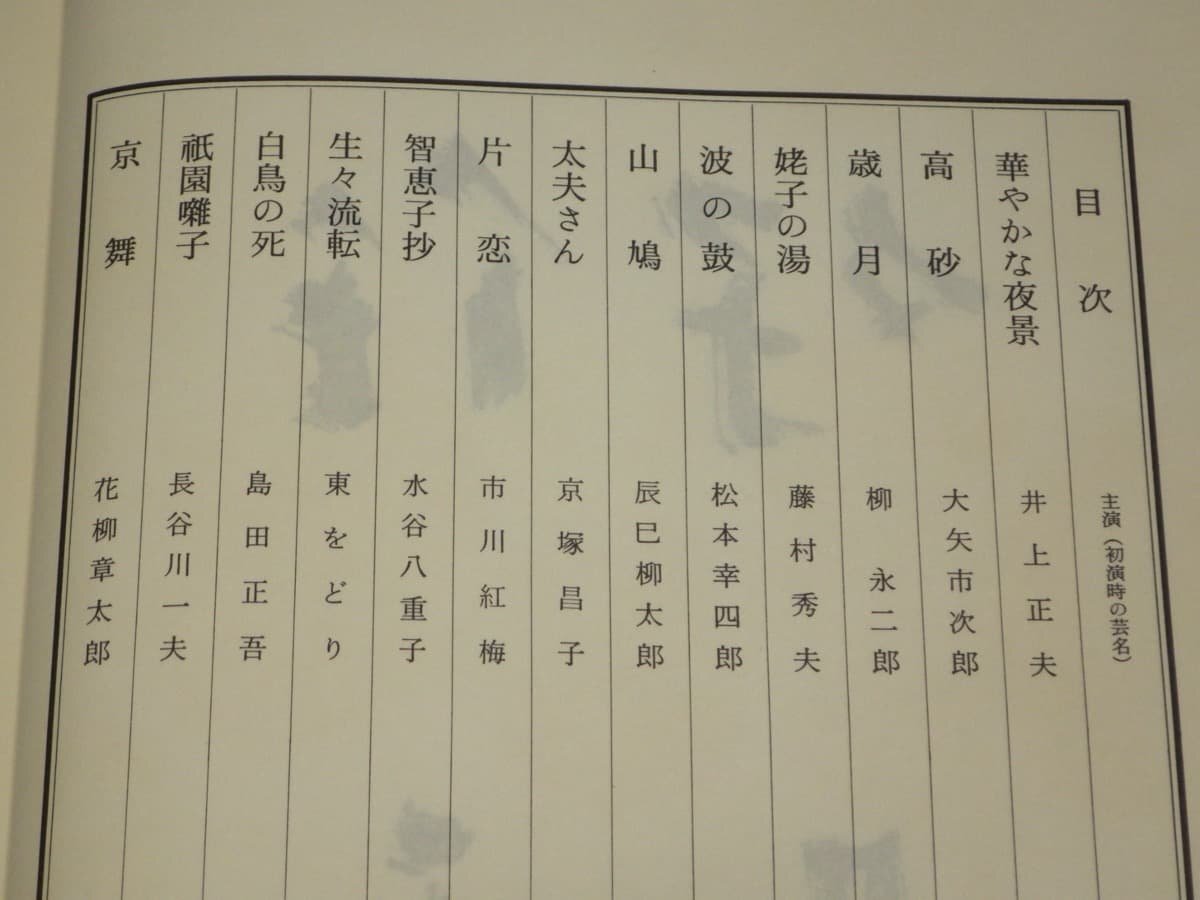 目次 主演（初演時の芸名）
華やかな夜景 井上正夫
高砂 大矢市次郎
歳月 柳永二郎
姥子の湯 藤村秀夫
波の鼓 松本幸四郎
山鳩 辰巳柳太郎
太夫さん 京塚昌子
片恋 市川紅梅
智恵子抄 水谷八重子
生々流転 東をどり
白鳥の死 島田正吾
祇園囃子 長谷川一夫
京舞 花柳章太郎